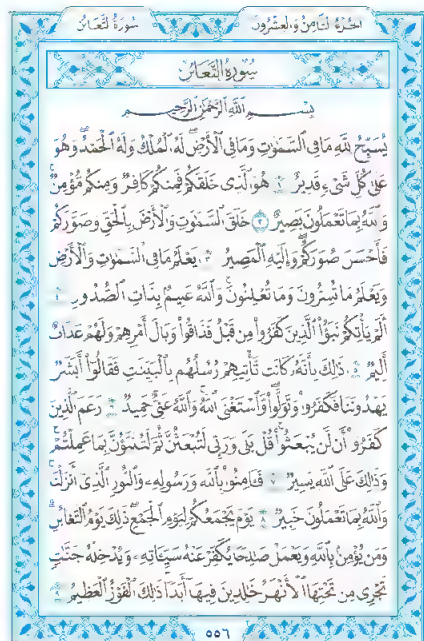 سُورَةُ التَّغَابُنِ
الجُزْءُ الثَّامِنُ وَالعِشْرُونَ
سُورَةُ التَّغَابُنِ
بِسْمِ اللَّهِ الرَّحْمَٰنِ الرَّحِيمِ
يُسَبِّحُ لِلَّهِ مَا فِي السَّمَٰوَٰتِ وَمَا فِي الْأَرْضِ ۖ لَهُ الْمُلْكُ وَلَهُ الْحَمْدُ ۖ وَهُوَ
عَلَىٰ كُلِّ شَيْءٍ قَدِيرٌ ١ هُوَ الَّذِي خَلَقَكُمْ فَمِنكُمْ كَافِرٌ وَمِنكُم مُّؤْمِنٌ ۚ
وَاللَّهُ بِمَا تَعْمَلُونَ بَصِيرٌ ٢ خَلَقَ السَّمَٰوَٰتِ وَالْأَرْضَ بِالْحَقِّ وَصَوَّرَكُمْ
فَأَحْسَنَ صُوَرَكُمْ ۖ وَإِلَيْهِ الْمَصِيرُ ٣ يَعْلَمُ مَا فِي السَّمَٰوَٰتِ وَالْأَرْضِ
وَيَعْلَمُ مَا تُسِرُّونَ وَمَا تُعْلِنُونَ ۚ وَاللَّهُ عَلِيمٌ بِذَاتِ الصُّدُورِ ٤
أَلَمْ يَأْتِكُمْ نَبَؤُا الَّذِينَ كَفَرُوا مِن قَبْلُ فَذَاقُوا وَبَالَ أَمْرِهِمْ وَلَهُمْ عَذَابٌ
أَلِيمٌ ٥ ذَٰلِكَ بِأَنَّهُ كَانَت تَّأْتِيهِمْ رُسُلُهُم بِالْبَيِّنَٰتِ فَقَالُوا أَبَشَرٌ
يَهْدُونَنَا فَكَفَرُوا وَتَوَلَّوا ۚ وَّاسْتَغْنَى اللَّهُ ۚ وَاللَّهُ غَنِيٌّ حَمِيدٌ ٦ زَعَمَ الَّذِينَ
كَفَرُوا أَن لَّن يُبْعَثُوا ۚ قُلْ بَلَىٰ وَرَبِّي لَتُبْعَثُنَّ ثُمَّ لَتُنَبَّؤُنَّ بِمَا عَمِلْتُمْ ۚ
وَذَٰلِكَ عَلَى اللَّهِ يَسِيرٌ ٧ فَـَٔامِنُوا بِاللَّهِ وَرَسُولِهِ وَالنُّورِ الَّذِي أَنزَلْنَا ۚ
وَاللَّهُ بِمَا تَعْمَلُونَ خَبِيرٌ ٨ يَوْمَ يَجْمَعُكُمْ لِيَوْمِ الْجَمْعِ ۖ ذَٰلِكَ يَوْمُ التَّغَابُنِ ۗ
وَمَن يُؤْمِن بِاللَّهِ وَيَعْمَلْ صَٰلِحًا يُكَفِّرْ عَنْهُ سَيِّـَٔاتِهِ وَيُدْخِلْهُ جَنَّٰتٍ
تَجْرِي مِن تَحْتِهَا الْأَنْهَٰرُ خَٰلِدِينَ فِيهَا أَبَدًا ۚ ذَٰلِكَ الْفَوْزُ الْعَظِيمُ ٩
٥٥٦